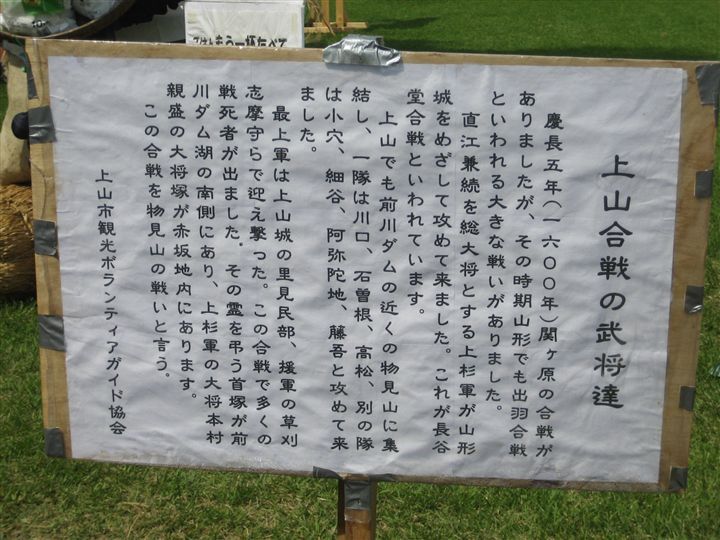 では もう一杯たべて
上山合戦の武将達
慶長五年(一六〇〇年)関ヶ原の合戦が
ありましたが、その時期山形でも出羽合戦
といわれる大きな戦いがありました。
直江兼続を総大将とする上杉軍が山形
城をめざして攻めて来ました。これが長谷
堂合戦といわれています。
上山でも前川ダムの近くの物見山に集
結し、一隊は川口、石曽根、高松、別の隊
は小穴、細谷、阿弥陀地、藤吾と攻めて来
ました。
最上軍は上山城の里見民部、援軍の草刈
志摩守らで迎え撃った。この合戦で多くの
戦死者が出ました。その霊を弔う首塚が前
川ダム湖の南側にあり、上杉軍の大将本村
親盛の大将塚が赤坂地内にあります。
この合戦を物見山の戦いと言う。
上山市観光ボランティアガイド協会